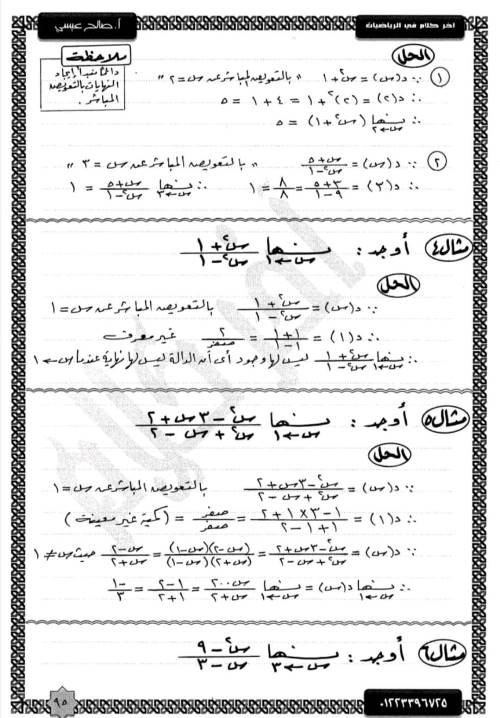 آخر كلام في الرياضيات
أ. صالح عيسى
ملاحظة
دائماً نبدأ إيجاد
النهايات بالتعويض
المباشر.
الحل
① ∵ د(س) = س² + ١ " بالتعويض المباشر عن س = ٢ "
∴ د(٢) = (٢)² + ١ = ٤ + ١ = ٥
∴ نهــا س←٢ (س² + ١) = ٥
② ∵ د(س) = (س + ٥)/(س² - ١) " بالتعويض المباشر عن س = ٣ "
∴ د(٣) = (٣ + ٥)/(٩ - ١) = ٨/٨ = ١ ∴ نهــا س←٣ (س + ٥)/(س² - ١) = ١
مثال ٤ أوجد : نهــا س←١ (س² + ١)/(س² - ١)
الحل
∵ د(س) = (س² + ١)/(س² - ١) بالتعويض المباشر عن س = ١
∴ د(١) = (١ + ١)/(١ - ١) = ٢/صفر غير معرف
∴ نهــا س←١ (س² + ١)/(س² - ١) ليس لها وجود أى أن الدالة ليس لها نهاية عندما س ← ١
مثال ٥ أوجد : نهــا س←١ (س² - ٣س + ٢)/(س² + س - ٢)
الحل
∵ د(س) = (س² - ٣س + ٢)/(س² + س - ٢) بالتعويض المباشر عن س = ١
∴ د(١) = (١ - ٣×١ + ٢)/(١ + ١ - ٢) = صفر/صفر = (كمية غير معينة)
∵ د(س) = (س² - ٣س + ٢)/(س² + س - ٢) = (س - ٢)(س - ١)/(س + ٢)(س - ١) = (س - ٢)/(س + ٢) حيث س ≠ ١
∴ نهــا س←١ د(س) = نهــا س←١ (س - ٢)/(س + ٢) = (١ - ٢)/(١ + ٢) = -١/٣
مثال ٦ أوجد : نهــا س←٣ (س² - ٩)/(س - ٣)
٩٥
٠١٢٢٣٣٩٦٧٢٥